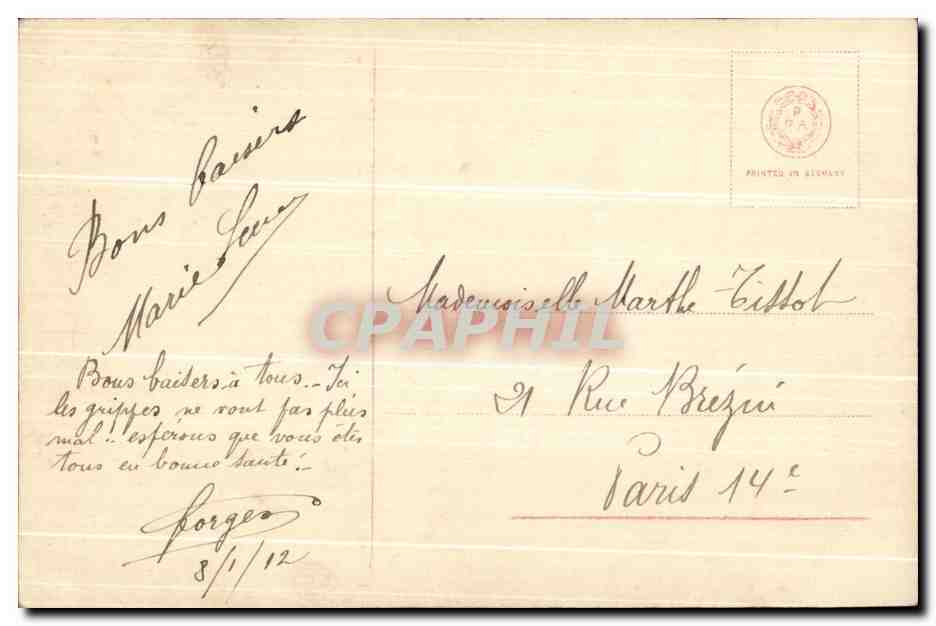 Bons baisers
Marie
Bons baisers à tous. - Ici
les grippes ne vont pas plus
mal.. espérons que vous êtes
tous en bonne santé. -
Georges
8/1/12
P
G. A.
PRINTED IN GERMANY
Mademoiselle Marthe Tissot
21 Rue Brézin
Paris 14e
CPAPHIL